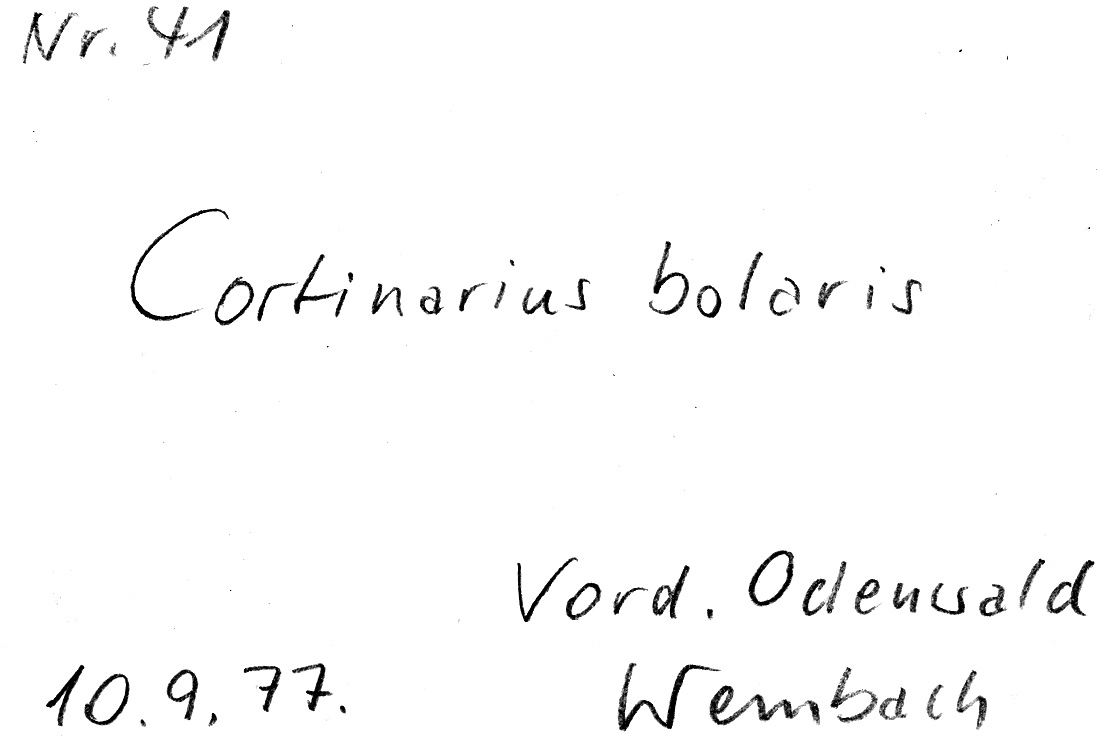 Nr. 41
Cortinarius bolaris
Vord. Odenwald
10.9.77. Wembach